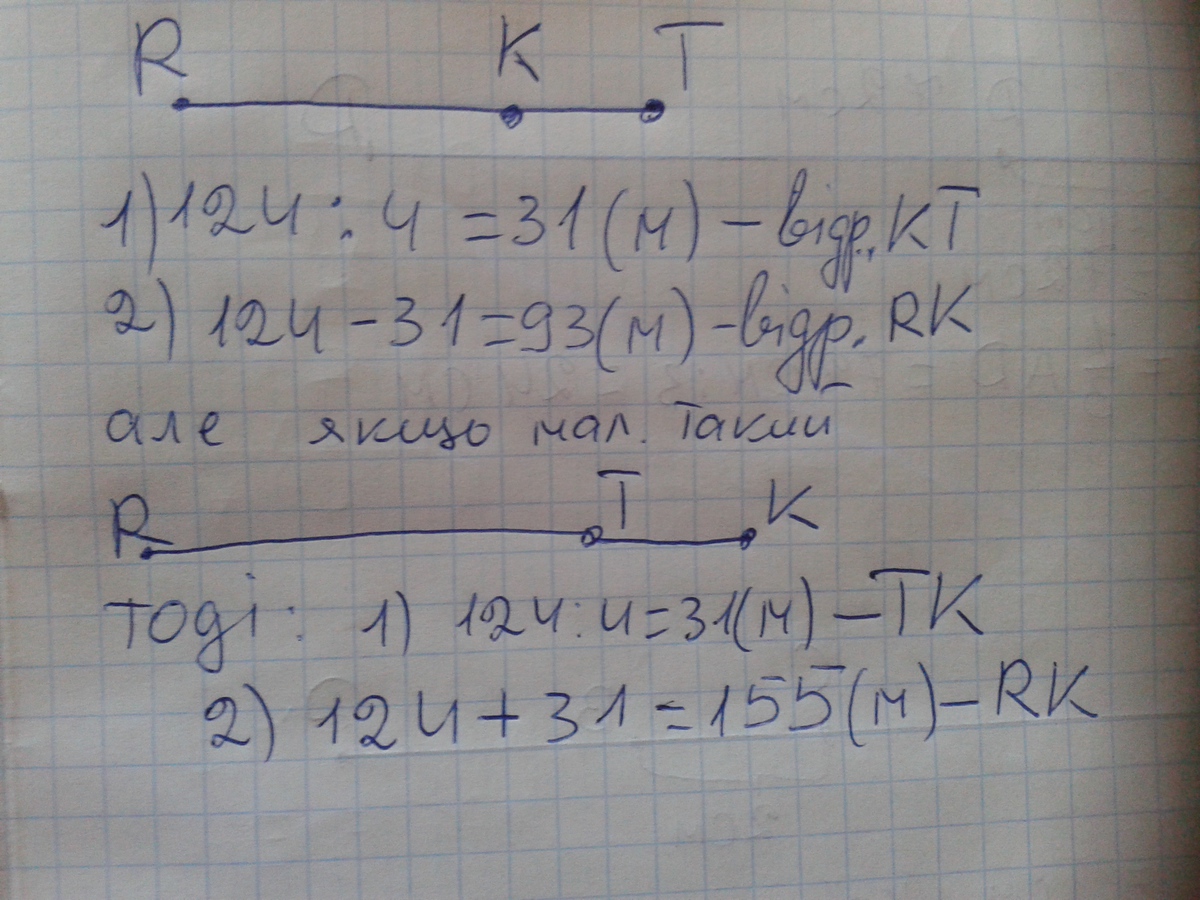 R K T
1) 124 : 4 = 31 (м) – відр. KT
2) 124 – 31 = 93 (м) – відр. RK
але якщо мал. такий
R T K
тоді: 1) 124 : 4 = 31 (м) – TK
2) 124 + 31 = 155 (м) – RK